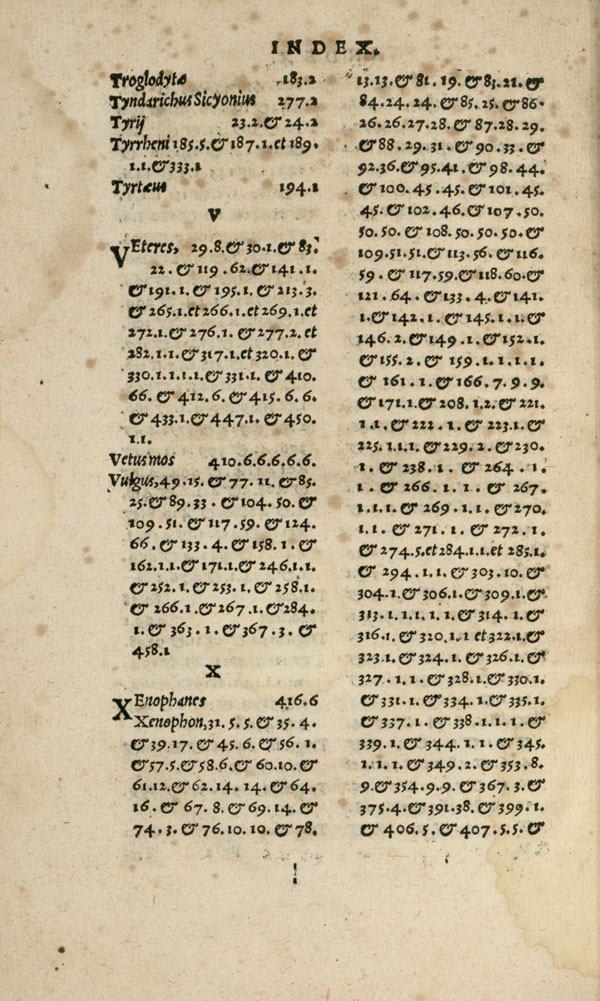 INDEX.
Troglodytæ 183.2
Tyndarichus Sicyonius 277.2
Tyrij 23.2.& 24.2
Tyrrheni 185.5.& 187.1.et 189.
1.1.& 333.1
Tyrtæus 194.1
V
VEteres, 29.8.& 30.1.& 83.
22.& 119.62.& 141.1.
& 191.1.& 195.1.& 213.3.
& 265.1.et 266.1.et 269.1.et
272.1.& 276.1.& 277.2.et
282.1.1.& 317.1.et 320.1.&
330.1.1.1.1.& 331.1.& 410.
66.& 412.6.& 415.6.6.
& 433.1.& 447.1.& 450.
1.1.
Vetus mos 410.6.6.6.6.6.
Vulgus, 49.15.& 77.11.& 85.
25.& 89.33.& 104.50.&
109.51.& 117.59.& 124.
66.& 133.4.& 158.1.&
162.1.1.& 171.1.& 246.1.1.
& 252.1.& 253.1.& 258.1.
& 266.1.& 267.1.& 284.
1.& 363.1.& 367.3.&
458.1
X
XEnophanes 416.6
Xenophon, 31.5.5.& 35.4.
& 39.17.& 45.6.& 56.1.
& 57.5.& 58.6.& 60.10.&
61.12.& 62.14.14.& 64.
16.& 67.8.& 69.14.&
74.3.& 76.10.10.& 78.
13.13.& 81.19.& 83.21.&
84.24.24.& 85.25.& 86.
26.26.27.28.& 87.28.29.
& 88.29.31.& 90.33.&
92.36.& 95.41.& 98.44.
& 100.45.45.& 101.45.
45.& 102.46.& 107.50.
50.50.& 108.50.50.50.&
109.51.51.& 113.56.& 116.
59.& 117.59.& 118.60.&
121.64.& 133.4.& 141.
1.& 142.1.& 145.1.1.&
146.2.& 149.1.& 152.1.
& 155.2.& 159.1.1.1.1.
& 161.1.& 166.7.9.9.
& 171.1.& 208.1.2.& 221.
1.1.& 222.1.& 223.1.&
225.1.1.1.& 229.2.& 230.
1.& 238.1.& 264.1.
1.& 266.1.1.& 267.
1.1.1.& 269.1.1.& 270.
1.1.& 271.1.& 272.1.
& 274.5.et 284.1.1.et 285.1.
& 294.1.1.& 303.10.&
304.1.& 306.1.& 309.1.&
313.1.1.1.1.1.& 314.1.&
316.1.& 320.1.1 et 322.1.&
323.1.& 324.1.& 326.1.&
327.1.1.& 328.1.& 330.1.
& 331.1.& 334.1.& 335.1.
& 337.1.& 338.1.1.1.&
339.1.& 344.1.1.& 345.
1.1.1.& 349.2.& 353.8.
9.& 354.9.9.& 367.3.&
375.4.& 391.38.& 399.1.
& 406.5.& 407.5.5.&